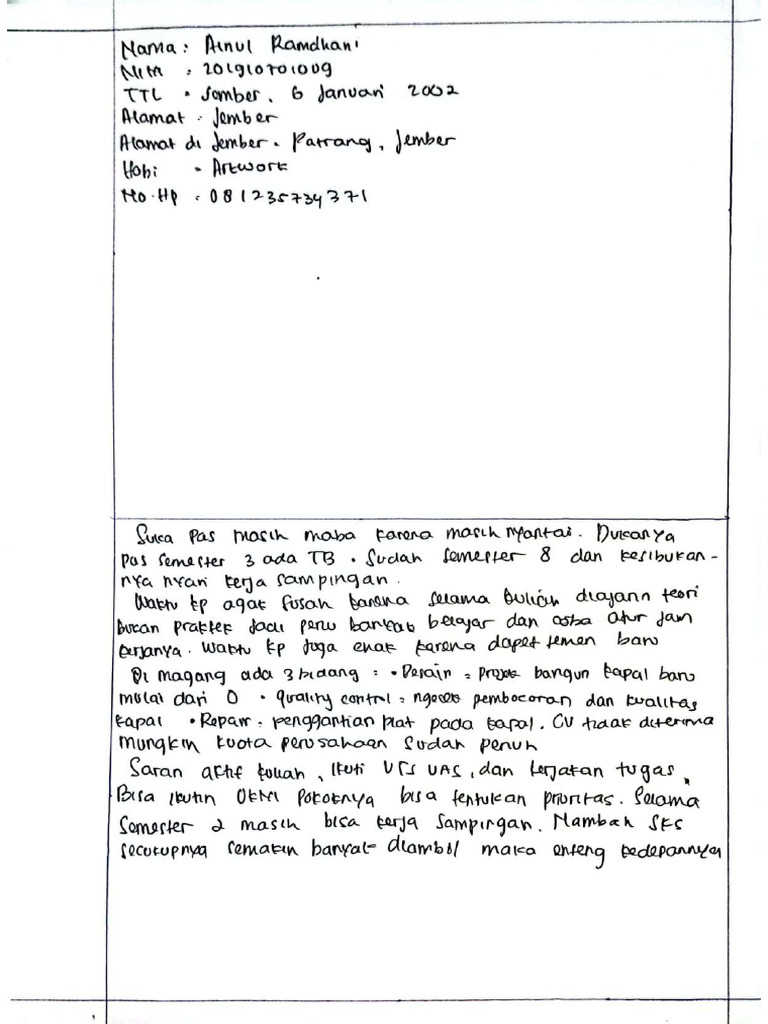 Nama : Ainul Ramdhani
NIM : 201910701009
TTL : Jember, 6 Januari 2002
Alamat : Jember
Alamat di Jember : Patrang, Jember
Hobi : Artwork
No.Hp : 081235734371
Suka pas masih maba karena masih nyantai. Dukanya
pas semester 3 ada TB. Sudah semester 8 dan kesibukan-
nya nyari kerja sampingan.
Waktu kp agak susah karena selama kuliah diajarin teori
bukan praktek jadi perlu banyak belajar dan coba atur jam
kerjanya. Waktu kp juga enak karena dapet temen baru
Di magang ada 3 bidang : • Desain = Proyek bangun kapal baru
mulai dari 0 • Quality control = ngecek pembocoran dan kualitas
kapal • Repair = penggantian plat pada kapal. CV tidak diterima
mungkin kuota perusahaan sudah penuh
Saran aktif kuliah, Ikuti UTS UAS, dan kerjakan tugas.
Bisa ikutin UKM Pokoknya bisa tentukan prioritas. Selama
semester 2 masih bisa kerja sampingan. Nambah SKS
secukupnya semakin banyak diambil maka enteng kedepannya